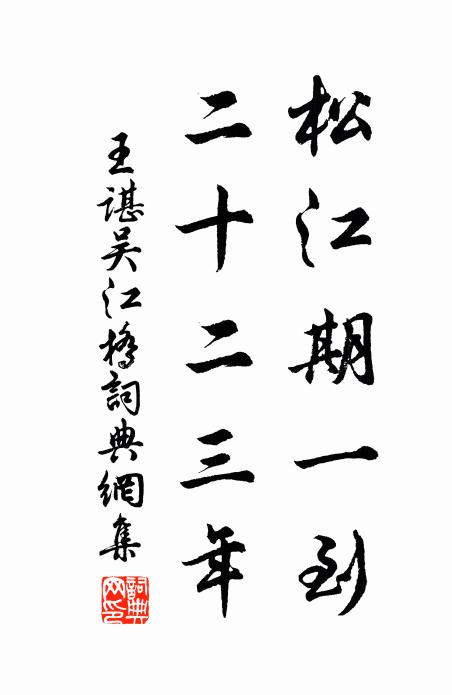 松江期一到
二十二三年
王諶吴江橋詞典網集
詞典网印